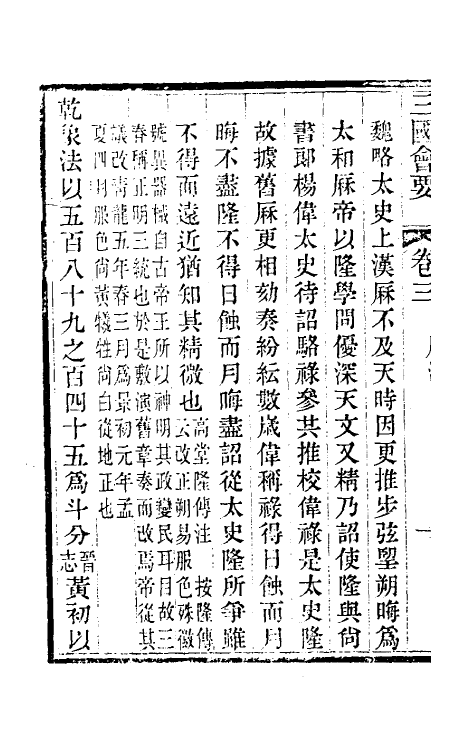 三國會要 卷三
魏略太史上漢厤不及天時因更推步弦望朔晦爲
太和厤帝以隆學問優深天文又精乃詔使隆與尙
書郎楊偉太史待詔駱祿參共推校偉祿是太史隆
故據舊厤更相劾奏紛紜數歲偉稱祿得日蝕而月
晦不盡隆不得日蝕而月晦盡詔從太史隆所爭雖
不得而遠近猶知其精微也
高堂隆傳注 按隆傳
云改正朔易服色殊徽
號異器械自古帝王所以神明其政變民耳目故三
春稱正明三統也於是敷演舊章奏而改焉帝從其
議改靑龍五年春三月爲景初元年孟
夏四月服色尙黃犧牲尙白從地正也
乾象法以五百八十九之百四十五爲斗分
晉志
黃初以